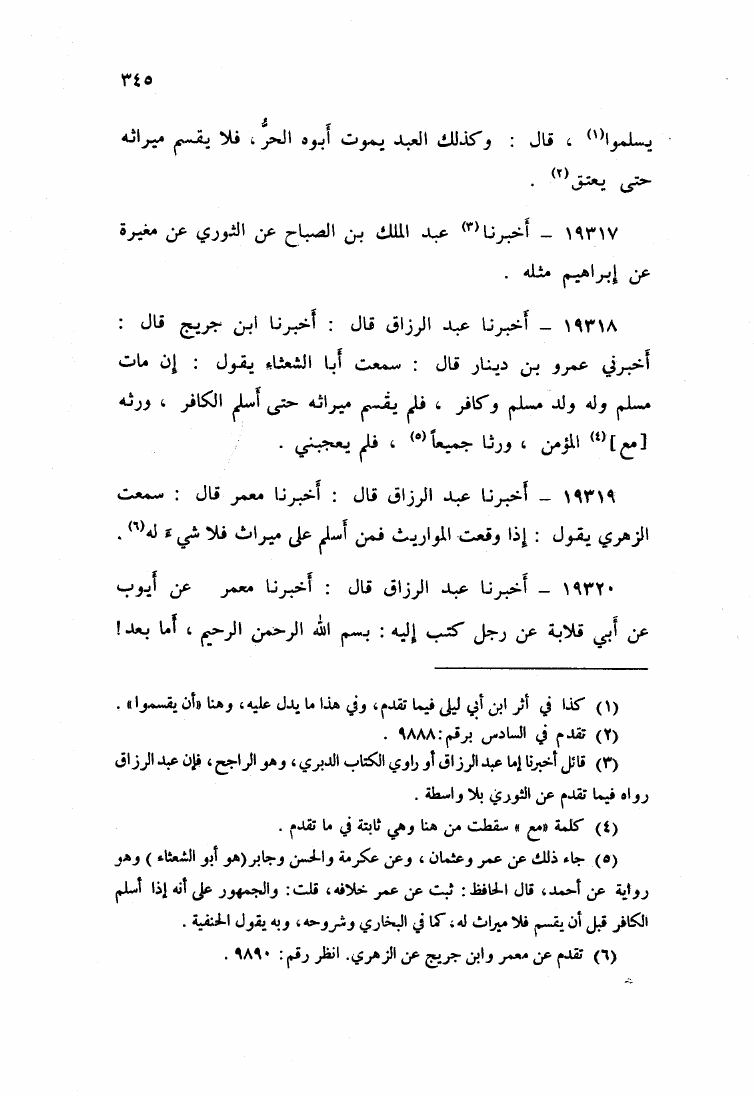 ٣٤٥
يسلموا(١) ، قال : وكذلك العبد يموت أَبوه الحرُّ ، فلا يقسم ميراثه
حتى يعتق(٢) .
١٩٣١٧ – أَخبرنا(٣) عبد الملك بن الصباح عن الثوري عن مغيرة
عن إبراهيم مثله .
١٩٣١٨ – أَخبرنا عبد الرزاق قال : أَخبرنا ابن جريج قال :
أَخبرني عمرو بن دينار قال : سمعت أَبا الشعثاء يقول : إن مات
مسلم وله ولد مسلم وكافر ، فلم يقسم ميراثه حتى أَسلم الكافر ، ورثه
[مع](٤) المؤمن ، ورثا جميعاً(٥) ، فلم يعجبني .
١٩٣١٩ – أَخبرنا عبد الرزاق قال : أَخبرنا معمر قال : سمعت
الزهري يقول : إذا وقعت المواريث فمن أَسلم على ميراث فلا شيءَ له(٦) .
١٩٣٢٠ – أَخبرنا عبد الرزاق قال : أَخبرنا معمر عن أَيوب
عن أَبي قلابة عن رجل كتب إليه : بسم الله الرحمن الرحيم ، أَما بعد!
(١) كذا في أثر ابن أبي ليلى فيما تقدم، وفي هذا ما يدل عليه، وهنا «أن يقسموا» .
(٢) تقدم في السادس برقم: ٩٨٨٨ .
(٣) قائل أخبرنا إما عبد الرزاق أو راوي الكتاب الدبري، وهو الراجح، فإن عبد الرزاق
رواه فيما تقدم عن الثوري بلا واسطة .
(٤) كلمة «مع » سقطت من هنا وهي ثابتة في ما تقدم .
(٥) جاء ذلك عن عمر وعثمان ، وعن عكرمة والحسن وجابر(هو أبو الشعثاء ) وهو
رواية عن أحمد، قال الحافظ: ثبت عن عمر خلافه، قلت: والجمهور على أنه إذا أسلم
الكافر قبل أن يقسم فلا ميراث له، كما في البخاري وشروحه، وبه يقول الحنفية .
(٦) تقدم عن معمر وابن جريج عن الزهري. انظر رقم: ٩٨٩٠ .